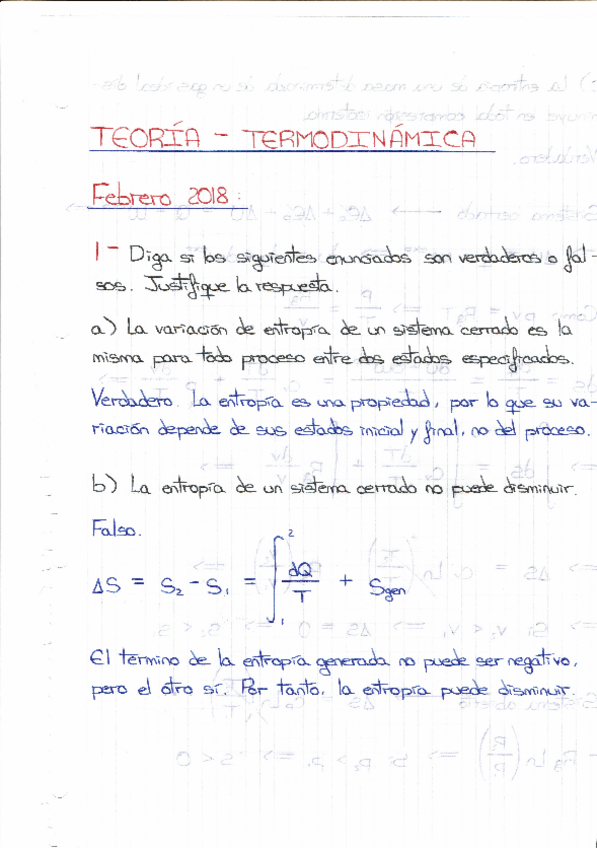 TEORÍA - TERMODINÁMICA
Febrero 2018:
1- Diga si los siguientes enunciados son verdaderos o fal-
sos. Justifique la respuesta.
a) La variación de entropía de un sistema cerrado es la
misma para todo proceso entre dos estados especificados.
Verdadero. La entropía es una propiedad, por lo que su va-
riación depende de sus estados inicial y final, no del proceso.
b) La entropía de un sistema cerrado no puede disminuir.
Falso.
ΔS = S₂ - S₁ = ∫₁² dQ/T + Sgen
El término de la entropía generada no puede ser negativo,
pero el otro sí. Por tanto, la entropía puede disminuir.